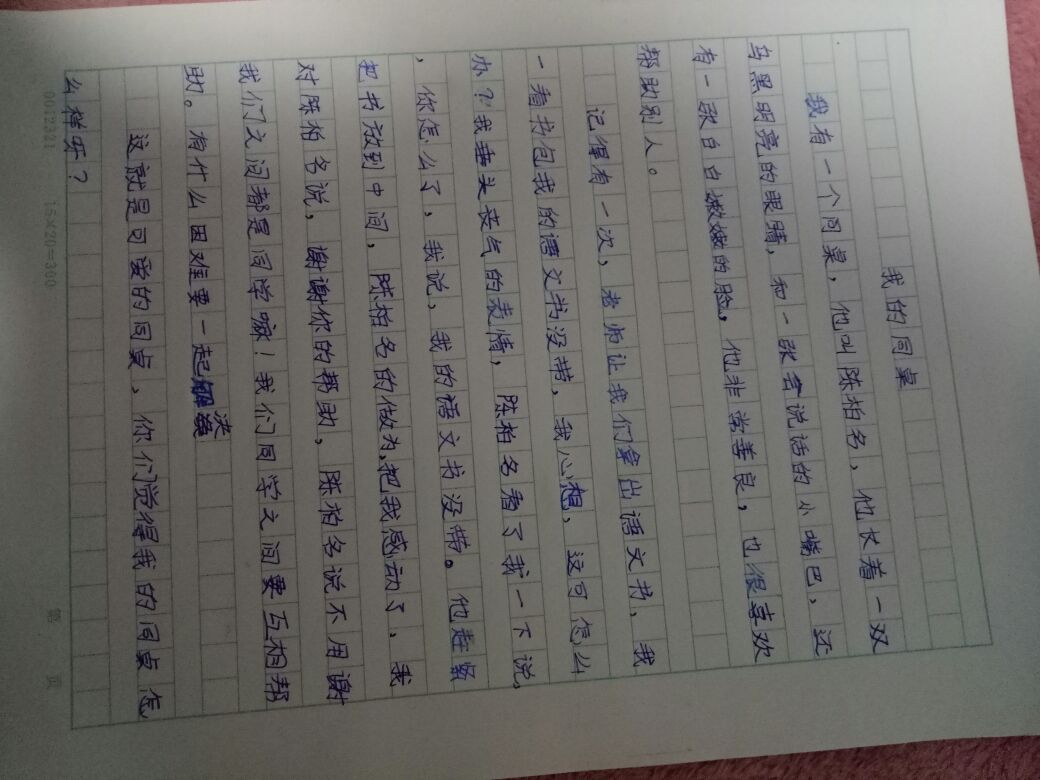 我的同桌
我有一个同桌，他叫陈柏名，他长着一双
乌黑明亮的眼睛，和一张会说话的小嘴巴，还
有一张白白嫩嫩的脸，他非常善良，也很喜欢
帮助别人。
记得有一次，老师让我们拿出语文书，我
一看书包我的语文书没带，我心想，这可怎么
办？我垂头丧气的表情，陈柏名看了我一下说，
，你怎么了，我说，我的语文书没带。他赶紧
把书放到中间，陈柏名的做为，把我感动了，我
对陈柏名说，谢谢你的帮助，陈柏名说不用谢
我们之间都是同学嗽！我们同学之间要互相帮
助。有什么困难要一起解决
这就是可爱的同桌、你们觉得我的同桌怎
么样乐？
0012331 15×20=300 第 页